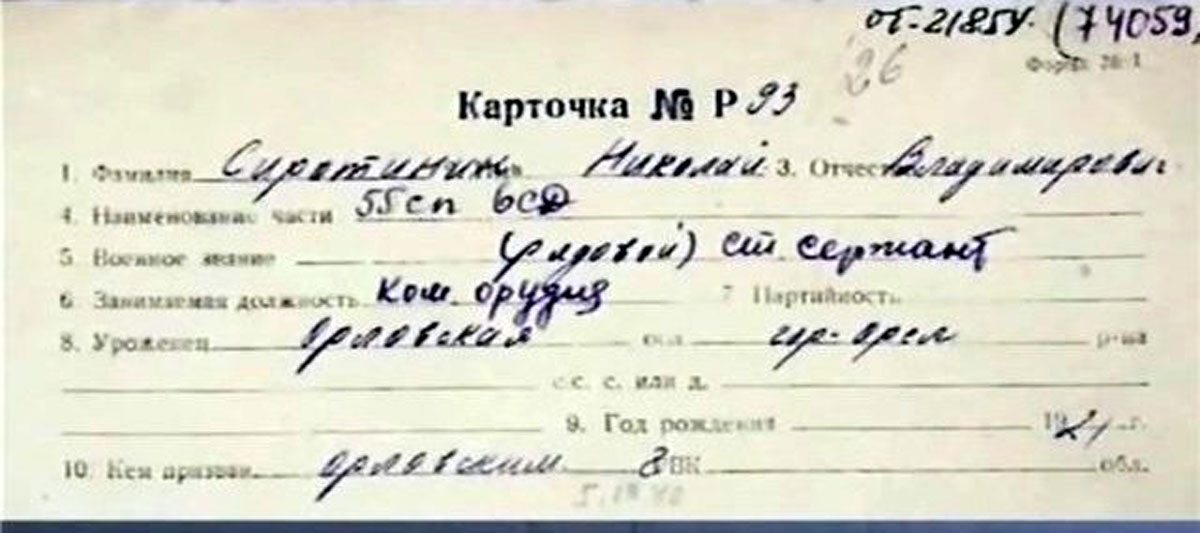 ОБ-2185У. (74059,
26 Форма № 1
Карточка № Р 93
1. Фамилия Сиротинин Николай 3. Отчество Владимирович
4. Наименование части 55 сп 6 СД
5. Военное звание (рядовой) ст сержант
6. Занимаемая должность ком. орудия 7 Партийность
8. Уроженец Орловская обл. гор. Орел р-на
с. с. или д.
9. Год рождения 1921 г.
10. Кем призван Орловским ВК обл.